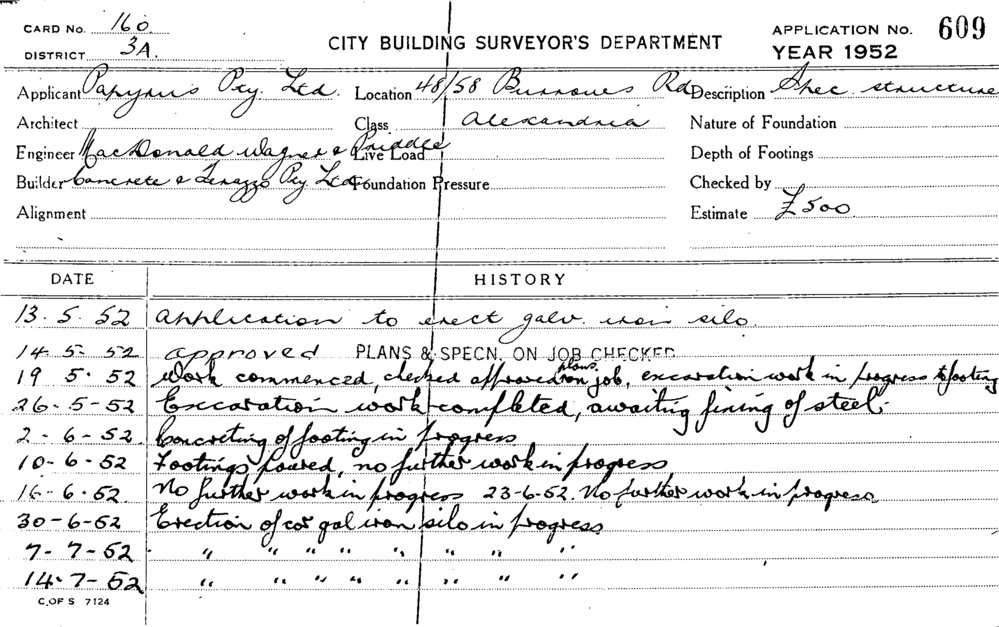 CARD No. 160. CITY BUILDING SURVEYOR'S DEPARTMENT APPLICATION No. 609
DISTRICT 3A. YEAR 1952
Applicant Papyrus Pty. Ltd. Location 48/58 Burrows Rd Description Spec. structure
Architect Class Alexandria Nature of Foundation
Engineer MacDonald Wagner & Priddle Live Load Depth of Footings
Builder Concrete & Terazzo Pty. Ltd. Foundation Pressure Checked by
Alignment Estimate £500
DATE HISTORY
13. 5. 52 Application to erect galv. iron silo
14. 5. 52 approved PLANS & SPECN. ON JOB CHECKED
19 5. 52 Work commenced, checked approved plans on job, excavation work in progress to footing
26-5-52 Excavation work completed, awaiting fixing of steel.
2-6-52 Concreting of footing in progress
10-6-52 Footings poured, no further work in progress
16-6-52. No further work in progress 23-6-52. No further work in progress
30-6-52 Erection of cor gal iron silo in progress
7-7-52 " " " " " " " "
14-7-52 " " " " " " " "
C. OF S 7124